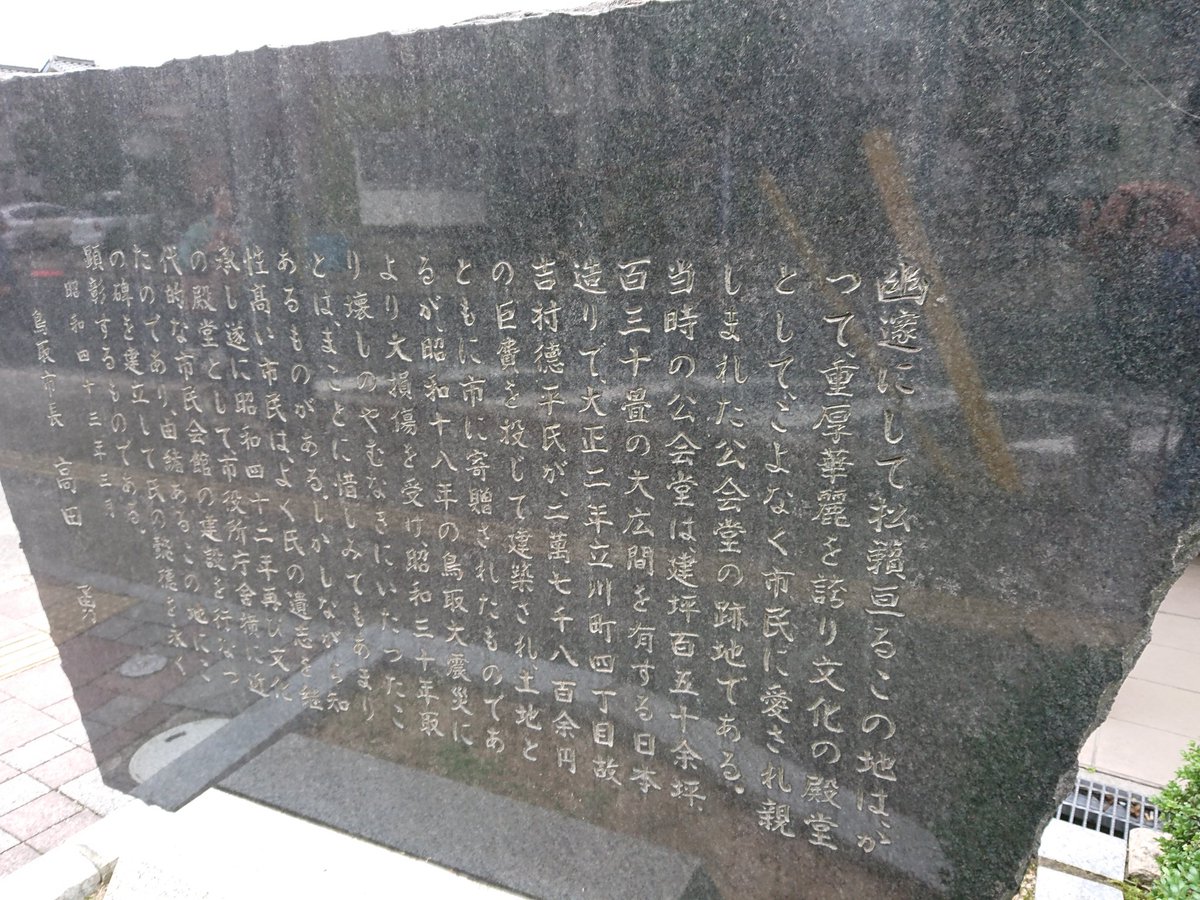 幽邃にして松籟亘るこの地は、か
つて、重厚華麗を誇り文化の殿堂
として、こよなく市民に愛され親
しまれた公会堂の跡地である。
当時の公会堂は、建坪百五十余坪
百三十畳の大広間を有する日本
造りで、大正二年立川町四丁目故
吉村徳平氏が、二萬七千八百余円
の巨費を投じて建築され、土地と
ともに市に寄贈されたものであ
るが、昭和十八年の鳥取大震災に
より大損傷を受け、昭和三十年取
り壊しのやむなきにいたったこ
とは、まことに惜しみてもあまり
あるものがある。しかしながら知
性高い市民は、よく氏の遺志を継
承し遂に昭和四十二年再び文化
の殿堂として市役所庁舎横に近
代的な市民会館の建設を行なっ
たのであり、由緒あるこの地にこ
の碑を建立して氏の懿徳を永く
顕彰するものである。
昭和四十三年三月
鳥取市長 高田 勇